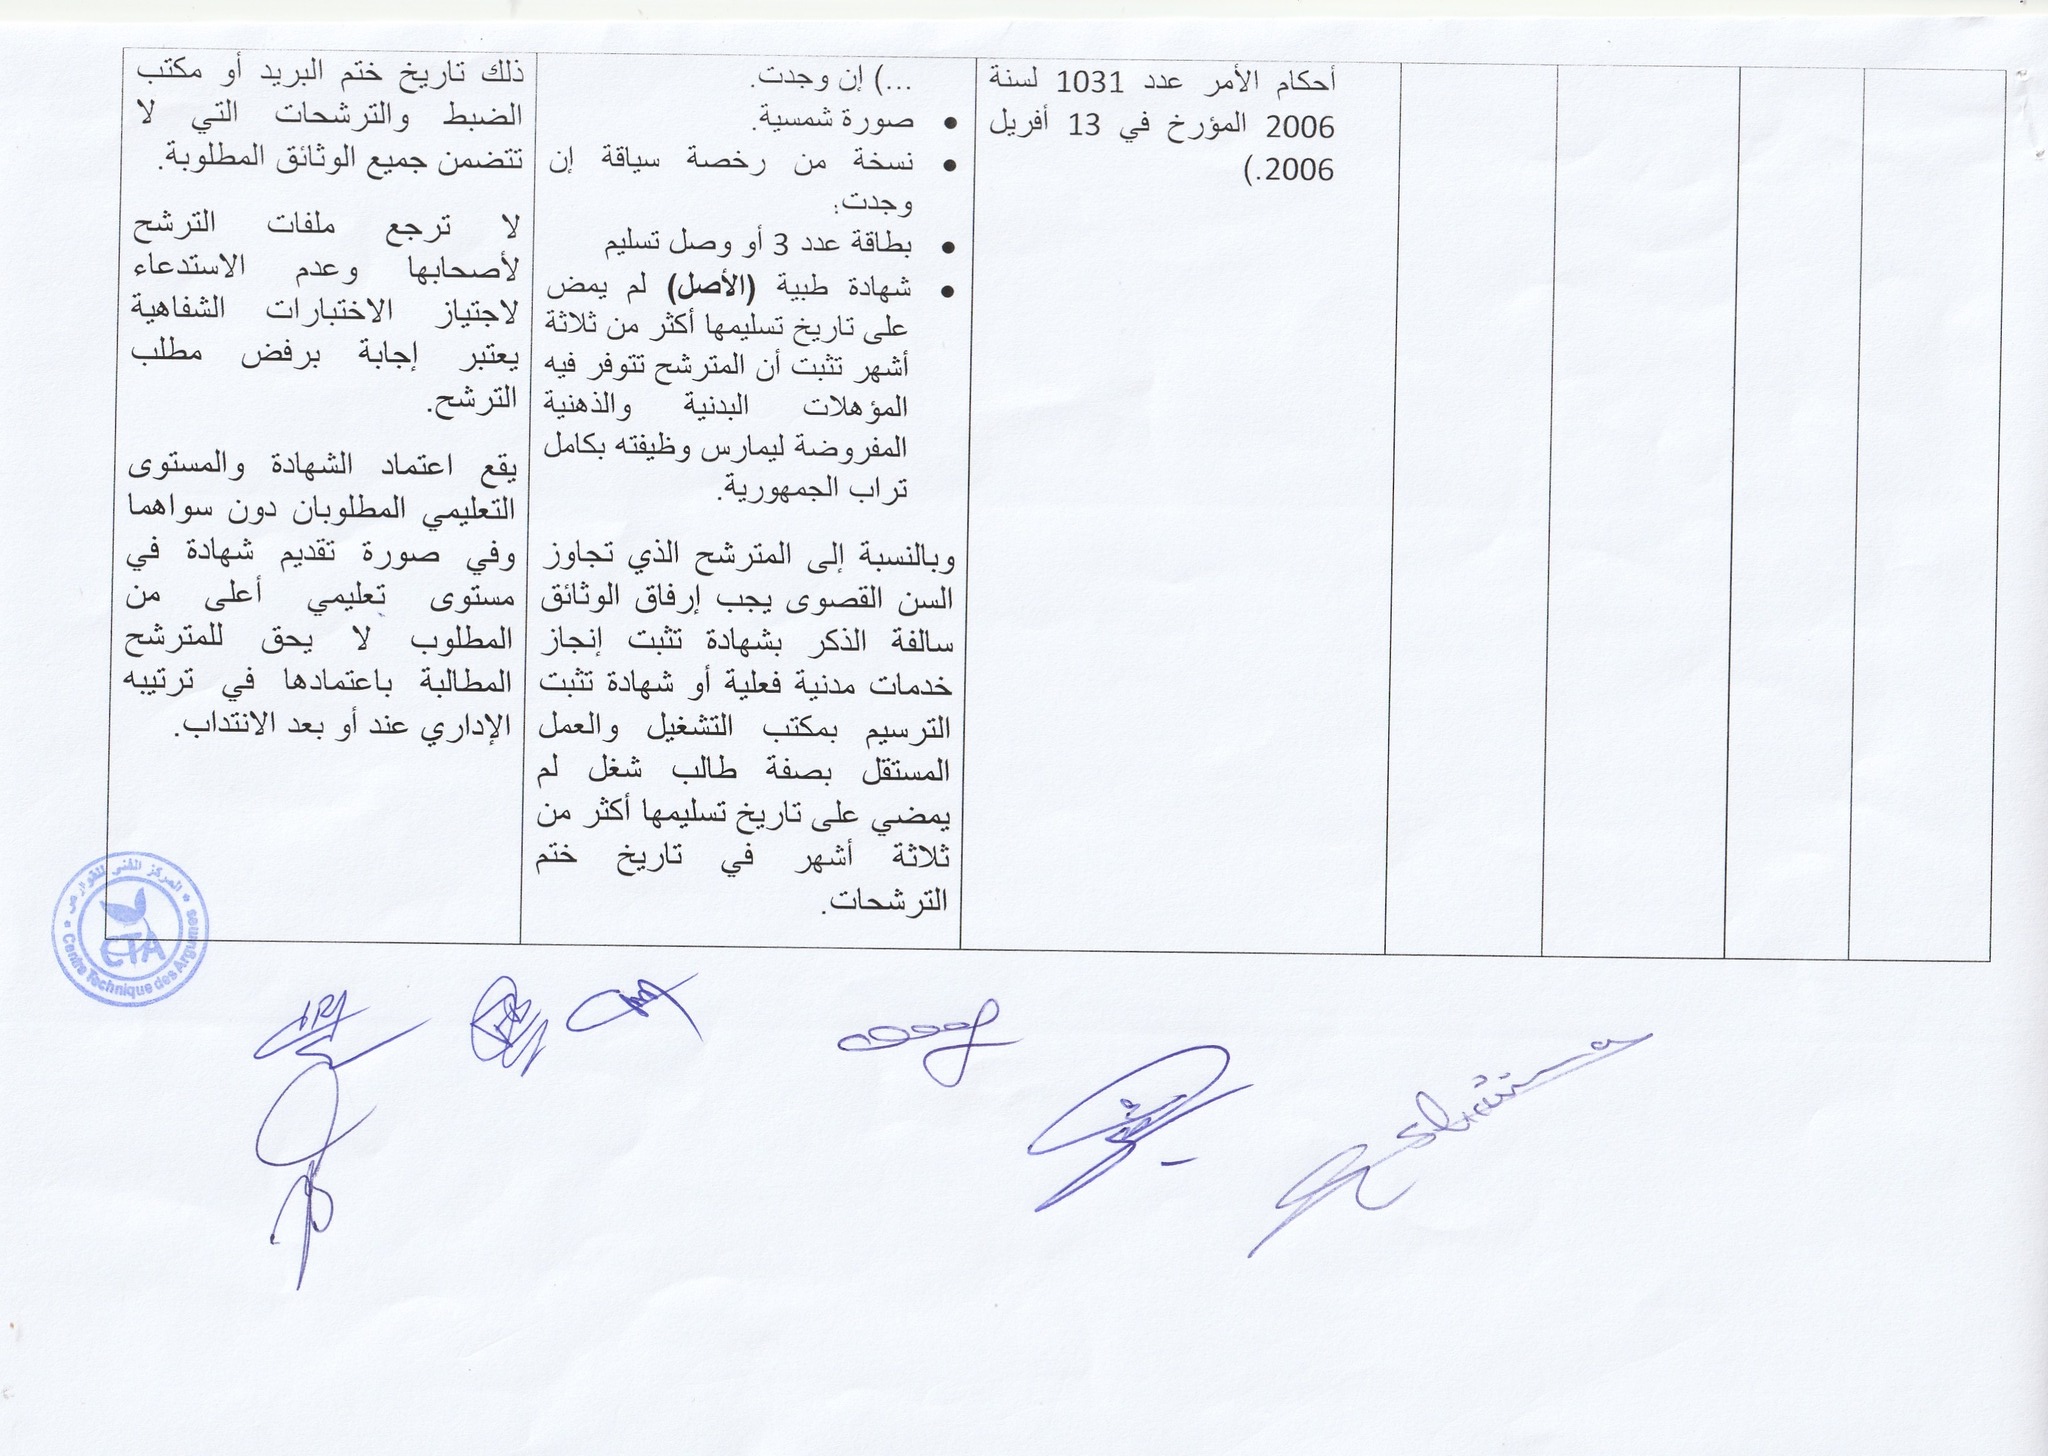 أحكام الأمر عدد 1031 لسنة
2006 المؤرخ في 13 أفريل
2006.)
...) إن وجدت.
● صورة شمسية.
● نسخة من رخصة سياقة إن
وجدت:
● بطاقة عدد 3 أو وصل تسليم
● شهادة طبية (الأصل) لم يمض
على تاريخ تسليمها أكثر من ثلاثة
أشهر تثبت أن المترشح تتوفر فيه
المؤهلات البدنية والذهنية
المفروضة ليمارس وظيفته بكامل
تراب الجمهورية.
وبالنسبة إلى المترشح الذي تجاوز
السن القصوى يجب إرفاق الوثائق
سالفة الذكر بشهادة تثبت إنجاز
خدمات مدنية فعلية أو شهادة تثبت
الترسيم بمكتب التشغيل والعمل
المستقل بصفة طالب شغل لم
يمضي على تاريخ تسليمها أكثر من
ثلاثة أشهر في تاريخ ختم
الترشحات.
ذلك تاريخ ختم البريد أو مكتب
الضبط والترشحات التي لا
تتضمن جميع الوثائق المطلوبة.
لا ترجع ملفات الترشح
لأصحابها وعدم الاستدعاء
لاجتياز الاختبارات الشفاهية
يعتبر إجابة برفض مطلب
الترشح.
يقع اعتماد الشهادة والمستوى
التعليمي المطلوبان دون سواهما
وفي صورة تقديم شهادة في
مستوى تعليمي أعلى من
المطلوب لا يحق للمترشح
المطالبة باعتمادها في ترتيبه
الإداري عند أو بعد الانتداب.
المركز الفني للقوارص
CTA
Centre Technique des Agrumes